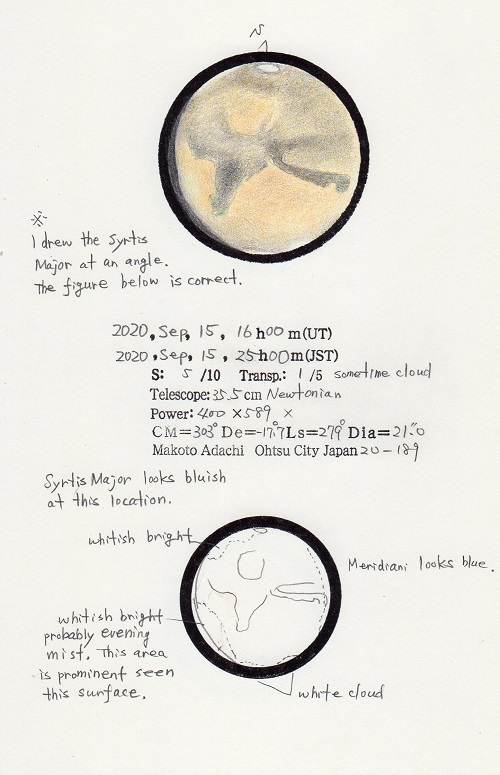 N
※
I drew the Syrtis
Major at an angle.
The figure below is correct.
2020, Sep, 15, 16h00m(UT)
2020, Sep, 15, 25h00m(JST)
S: 5 /10 Transp.: 1 /5 sometime cloud
Telescope: 35.5cm Newtonian
Power: 400 ×589 ×
CM=303° De=-17.°7 Ls=279° Dia=21."0
Makoto Adachi Ohtsu City Japan 20-189
Syrtis Major looks bluish
at this location.
whitish bright
Meridiani looks blue.
whitish bright
probably evening
mist. This area
is prominent seen
this surface.
white cloud